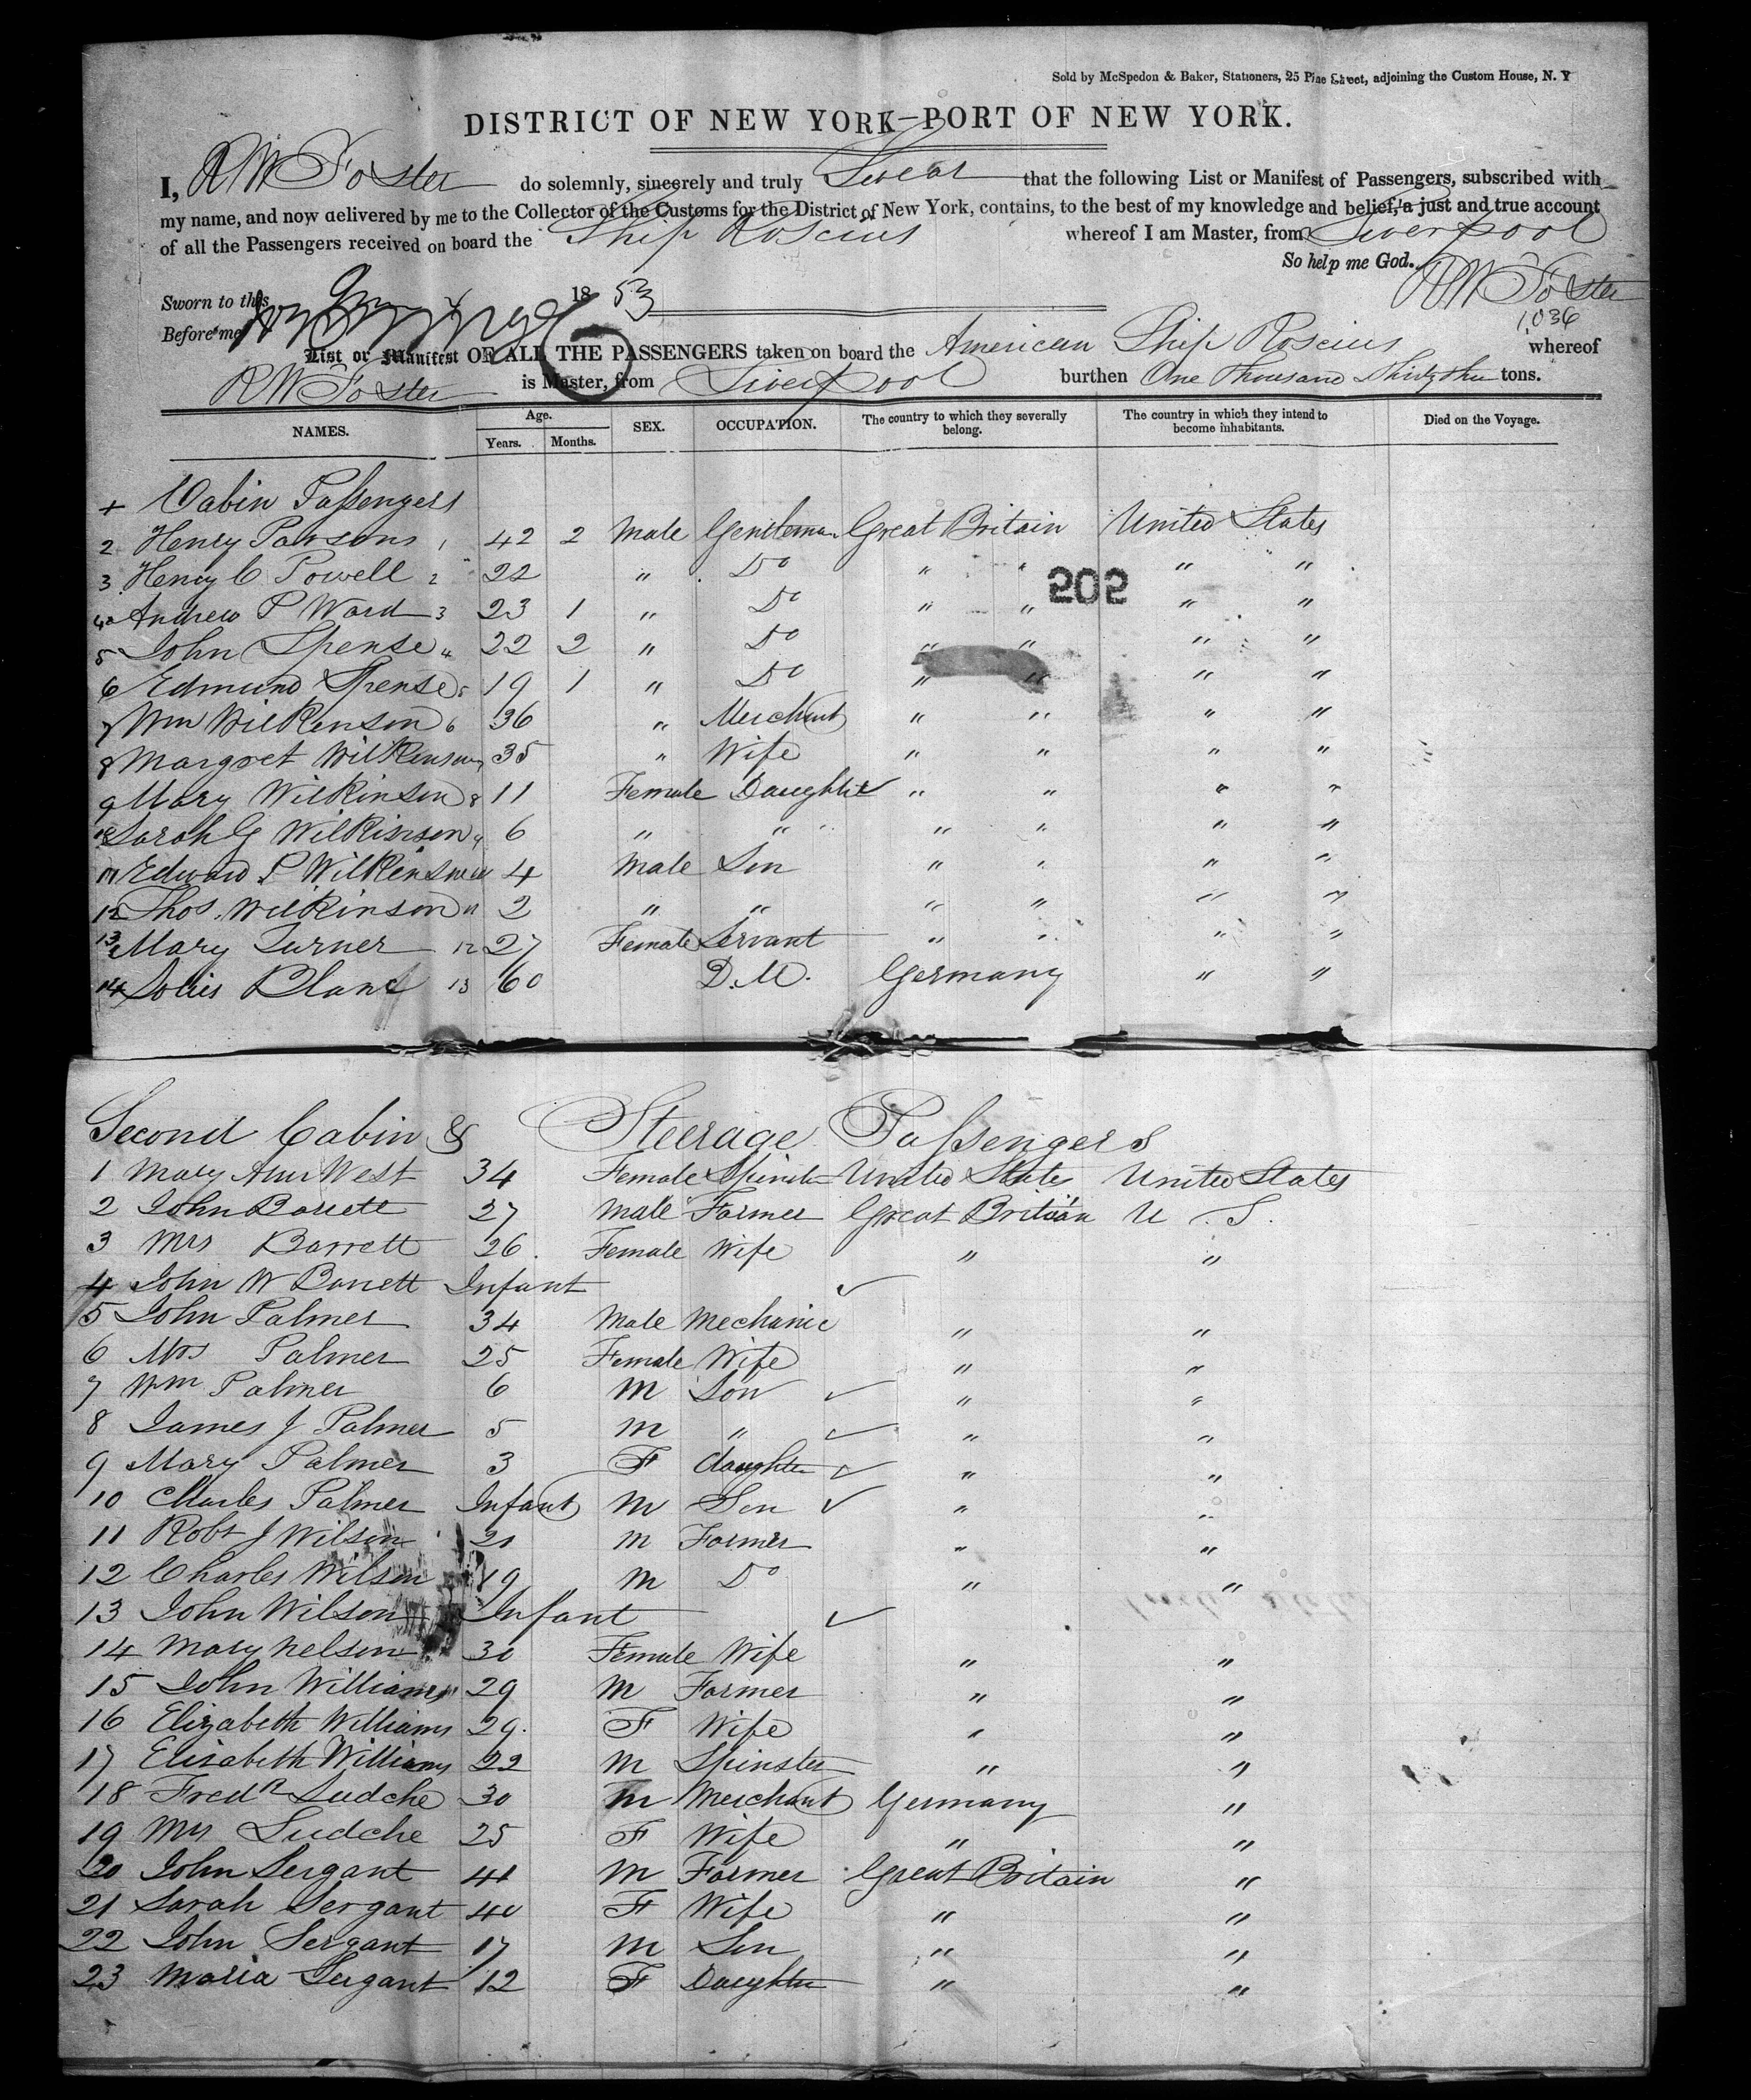 Sold by McSpedon & Baker, Stationers, 25 Pine Street, adjoining the Custom House, N. Y
DISTRICT OF NEW YORK–PORT OF NEW YORK.
I, R W Foster do solemnly, sincerely and truly Swear that the following List or Manifest of Passengers, subscribed with
my name, and now delivered by me to the Collector of the Customs for the District of New York, contains, to the best of my knowledge and belief, a just and true account
of all the Passengers received on board the Ship Roscius whereof I am Master, from Liverpool
So help me God.
R W Foster
Sworn to this 1853
Before me
1,036
List or Manifest OF ALL THE PASSENGERS taken on board the American Ship Roscius whereof
R W Foster is Master, from Liverpool burthen One Thousand Thirty tons.
NAMES. Age. Years. Months. SEX. OCCUPATION. The country to which they severally belong. The country in which they intend to become inhabitants. Died on the Voyage.
+ Cabin Passengers
2 Henry Parsons 1 42 2 Male Gentleman Great Britain United States
3 Henry C Powell 2 22 " Do " " " "
202
4 Andrew P Ward 3 23 1 " Do " " " "
5 John Spense 4 22 2 " Do " " " "
6 Edmund Spense 5 19 1 " Do " " " "
7 Wm Wilkenson 6 36 " Merchant " " " "
8 Margret Wilkenson 7 35 " Wife " " " "
9 Mary Wilkinson 8 11 Female Daughter " " " "
10 Sarah G Wilkinson 9 6 " " " " " "
11 Edward P Wilkenson 10 4 Male Son " " " "
12 Thos. Wilkinson 11 2 " " " " " "
13 Mary Turner 12 27 Female Servant " " " "
14 Louis Blanc 13 60 D.M. Germany " "
Second Cabin & Steerage Passengers
1 Mary Ann West 34 Female Spinster United States United States
2 John Barrett 27 Male Farmer Great Britian U. S.
3 Mrs Barrett 26 Female Wife " "
4 John W Barrett Infant ✓
5 John Palmer 34 Male Mechanic " "
6 Mrs Palmer 25 Female Wife " "
7 Wm Palmer 6 M Son ✓ " "
8 James J Palmer 5 M " ✓ " "
9 Mary Palmer 3 F daughter ✓ " "
10 Charles Palmer Infant M Son ✓ " "
11 Robt J Wilson 21 M Farmer " "
12 Charles Wilson 19 M Do " "
13 John Wilson Infant ✓
14 Mary Nelson 30 Female Wife " "
15 John Williams 29 M Farmer " "
16 Elizabeth Williams 29 F Wife " "
17 Elisabeth Williams 22 M Spinster " "
18 Fredk Ludche 30 M Merchant Germany "
19 Mrs Ludche 25 F Wife " "
20 John Sergant 41 M Farmer Great Britain "
21 Sarah Sergant 40 F Wife " "
22 John Sergant 17 M Son " "
23 Maria Sergant 12 F Daughter " "